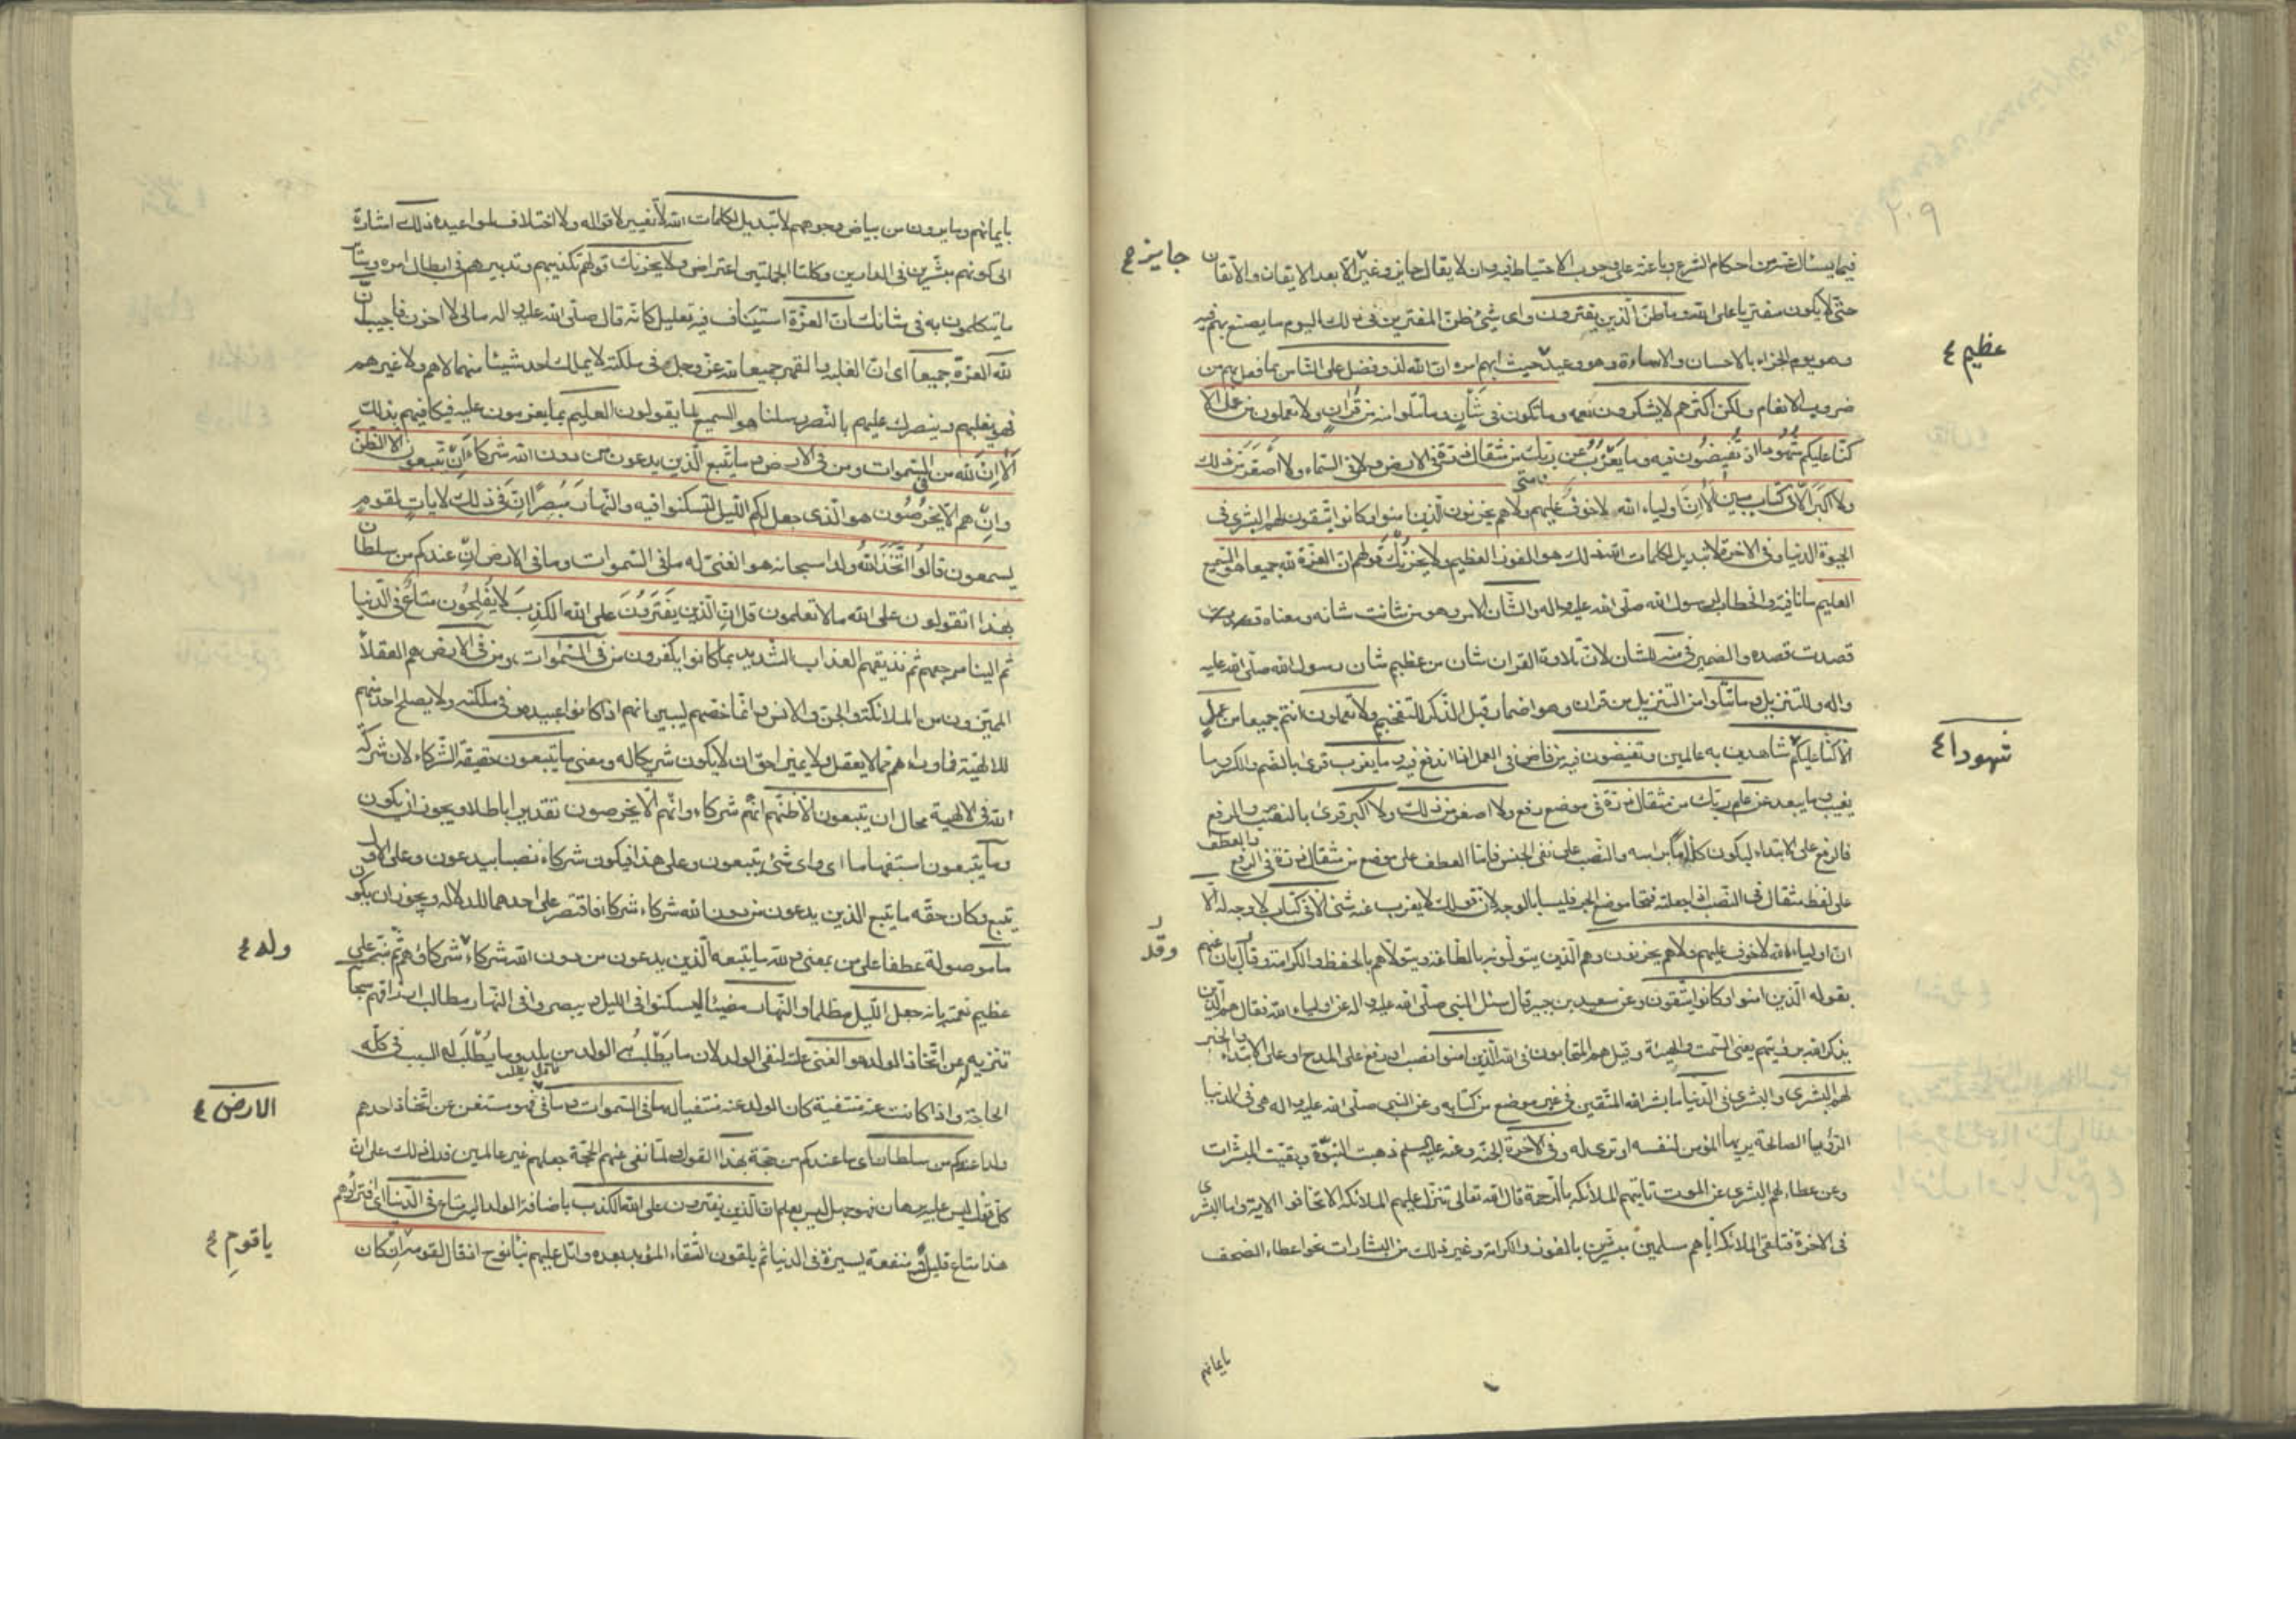 ٢٠٩
فيما يسئال عنه من احكام الشرع وباعثة على وجوب الاحتياط فيه وان لا يقال جايز وغير الا بعد الايقان والاتقان
جايز ع
حتى لا يكون مفتريا على الله وما ظن الذين يفترون واى شئ ظن المفترين فى ذلك اليوم ما يصنع بهم فيه
وهو يوم الجزاء بالاحسان والاساءة وهو وعيد حيث ابهم امره ان الله لذو فضل على الناس بما فعل بهم من
عظيم ع
ضروب الانعام ولكن اكثرهم لا يشكرون نعمه وما تكون فى شأن وما تتلوا منه من قران ولا تعملون من عمل الا
كنا عليكم شهودا اذ تفيضون فيه وما يعزب عن ربك من مثقال ذرة فى الارض ولا فى السماء ولا اصغر من ذلك
ولا اكبر الا فى كتاب مبين الا ان اولياء الله لا خوف عليهم ولا هم يحزنون الذين امنوا وكانوا يتقون لهم البشرى فى
الحيوة الدنيا وفى الاخرة لا تبديل لكلمات الله ذلك هو الفوز العظيم ولا يحزنك قولهم ان العزة لله جميعا هو السميع
العليم ما نافية والخطاب لرسول الله صلى الله عليه واله والشان الامر وهو من شانت شانه ومعناه
قصدت قصده والضمير فى منه للشان لان تلاوة القران شان من عظيم شان رسول الله صلى الله عليه
واله وللتنزيل وما تتلوا من التنزيل من قران وهو اضمار قبل الذكر للتفخيم ولا تعملون انتم جميعا من عمل
الا كنا عليكم شاهدين به عالمين وتفيضون فيه من فاض فى العمل اذا اندفع فيه وما يعزب قرئ بالضم والكسر وما
شهودا ع
يغيب وما يبعد عن علم ربك من مثقال ذرة فى موضع رفع ولا اصغر من ذلك ولا اكبر قرئ بالنصب والرفع
فالرفع على الابتداء ليكون كلاما براسه والنصب على نفى الجنس فاما العطف على موضع من مثقال ذرة فى الرفع
والعطف
على لفظ مثقال فى النصب اذا جعلته فتحا موضع الجر فليسا بالوجه لان قولك لا يعزب عنه شئ الا فى كتاب لا وجه له الا
ان اولياء الله لا خوف عليهم ولا هم يحزنون وهم الذين يتولونه بالطاعة ويتولاهم بالحفظ والكرامة وقال بان عنهم
وقد
بقوله الذين امنوا وكانوا يتقون وعن سعيد بن جبير قال سئل النبى صلى الله عليه واله عن اولياء الله فقال هم الذين
يذكر الله برؤيتهم يعنى السمت والهيئة وقيل هم المتحابون فى الله الذين امنوا نصب او رفع على المدح او على الابتداء
والخبر
لهم البشرى والبشرى فى الدنيا ما بشر الله المتقين فى غير موضع من كتابه وعن النبى صلى الله عليه واله هى فى الدنيا
الرؤيا الصالحة يريها المؤمن لنفسه او ترى له وفى الاخرة الجنة وعنه عليه السلم ذهبت النبوة وبقيت المبشرات
وعن عطاء لهم البشرى عن الموت تاتيهم الملائكة بالرحمة قال الله تعالى تتنزل عليهم الملائكة الا تخافوا الاية واما البشرى
فى الاخرة فتلقى الملائكة اياهم مسلمين مبشرين بالفوز والكرامة وغير ذلك من البشارات نحو اعطاء الصحف
بايمانهم
بايمانهم وما يرون من بياض وجوههم لا تبديل لكلمات الله لا تغيير لاقواله ولا اختلاف لمواعيده ذلك اشارة
الى كونهم مبشرين فى الدارين وكلتا الجملتين اعتراض ولا يحزنك قولهم تكذيبهم وتدبيرهم فى ابطال امره وسائر
ما يتكلمون به فى شانك ان العزة استيناف فيه تعليل كانه قال صلى الله عليه واله مالى لا احزن فاجيب ان
لله العزة جميعا اى ان الغلبة والقهر جميعا لله عز وجل فى ملكته لا يملك احد شيئا منهما لا هم ولا غيرهم
فهو يغلبهم وينصرك عليهم بالنصر رسلنا هو السميع لما يقولون العليم بما يعزمون عليه فيكافيهم بذلك
الا ان لله من السموات ومن فى الارض وما يتبع الذين يدعون من دون الله شركاء ان تبعون الا الظن
فى
وان هم الا يخرصون هو الذى جعل لكم الليل لتسكنوا فيه والنهار مبصرا ان فى ذلك لايات لقوم
يسمعون قالوا اتخذ الله ولدا سبحانه هو الغنى له ما فى السموات وما فى الارض ان عندكم من سلطان
بهذا اتقولون على الله ما لا تعلمون قل ان الذين يفترون على الله الكذب لا يفلحون متاع فى الدنيا
ثم الينا مرجعهم ثم نذيقهم العذاب الشديد بما كانوا يكفرون من فى السموات ومن فى الارض هم العقلاء
المميزون من الملائكة والجن والانس وانما خصهم ليبين انهم اذا كانوا عبيده وفى ملكته ولا يصلح احد منهم
للالهية فما وراءهم مما لا يعقل ولا يميز احق ان لا يكون شريكا له ومعنى ما يتبعون حقيقة الشركاء لان شركة
الله فى الالهية محال ان يتبعون الا ظنهم انهم شركاء وانهم الا يخرصون تقديرا باطلا ويجوز ان يكون
وما يتبعون استفهاما اى واى شئ يتبعون وعلى هذا فيكون شركاء نصبا بيدعون وعلى الاول
يتبع وكان حقه ما يتبع الذين يدعون من دون الله شركاء شركاء فاقتصر على احدهما للدلالة ويجوز ان يكون
ما موصولة عطفا على من بمعنى ولله ما يتبعه الذين يدعون من دون الله شركاء شركاؤهم ثم نبه على
عظيم نعمته بانه جعل الليل مظلما والنهار مضيئا ليسكنوا فى الليل ويبصروا فى النهار مطالب ارزاقهم سبحانه
ولدا ع
تنزيه عن اتخاذ الولد هو الغنى علة لنفى الولد لان ما يطلب به الولد من يلد وما يطلب له السبب فى كله
الحاجة واذا كانت عنه منتفية كان الولد عنه منتفيا له ما فى السموات وما فى فهو مستغن عن اتخاذ احدهم
الارض ع
ولدا عندكم من سلطان اى ما عندكم من حجة بهذا القول ولما نفى عنهم الحجة جعلهم غير عالمين فدل ذلك على ان
كل قول ليس عليه برهان فهو جهل ليس بعلم ان الذين يفترون على الله الكذب باضافة الولد اليه متاع فى الدنيا اى افتراؤهم
هذا متاع قليل ومنفعة يسيرة فى الدنيا ثم يلقون الشقاء المؤبد بعده واتل عليهم نبا نوح اذ قال لقومه ان كان
ياقوم ع